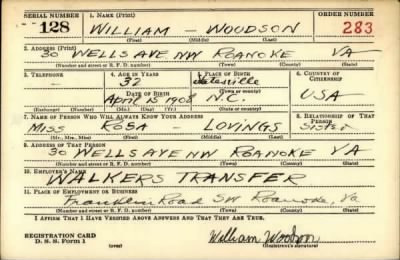 SERIAL NUMBER 1. NAME (Print) ORDER NUMBER
128 WILLIAM — WOODSON 283
(First) (Middle) (Last)
2. ADDRESS (Print)
30 WELLS AVE. NW ROANOKE VA
(Number and street or R. F. D. number) (Town) (County) (State)
3. TELEPHONE 4. AGE IN YEARS 5. PLACE OF BIRTH 6. COUNTRY OF CITIZENSHIP
— 32 Statesville
DATE OF BIRTH (Town or county)
April 15 1908 N.C. USA
(Exchange) (Number) (Mo.) (Day) (Yr.) (State or country)
7. NAME OF PERSON WHO WILL ALWAYS KNOW YOUR ADDRESS 8. RELATIONSHIP OF THAT PERSON
MISS ROSA — LOVINGS Sister
(Mr., Mrs., Miss) (First) (Middle) (Last)
9. ADDRESS OF THAT PERSON
30 WELLS AVE NW ROANOKE VA
(Number and street or R. F. D. number) (Town) (County) (State)
10. EMPLOYER'S NAME
WALKERS TRANSFER
11. PLACE OF EMPLOYMENT OR BUSINESS
Franklin Road SW Roanoke, Va
(Number and street or R. F. D. number) (Town) (County) (State)
I AFFIRM THAT I HAVE VERIFIED ABOVE ANSWERS AND THAT THEY ARE TRUE.
REGISTRATION CARD William Woodson
D. S. S. Form 1 (over) (Registrant's signature)